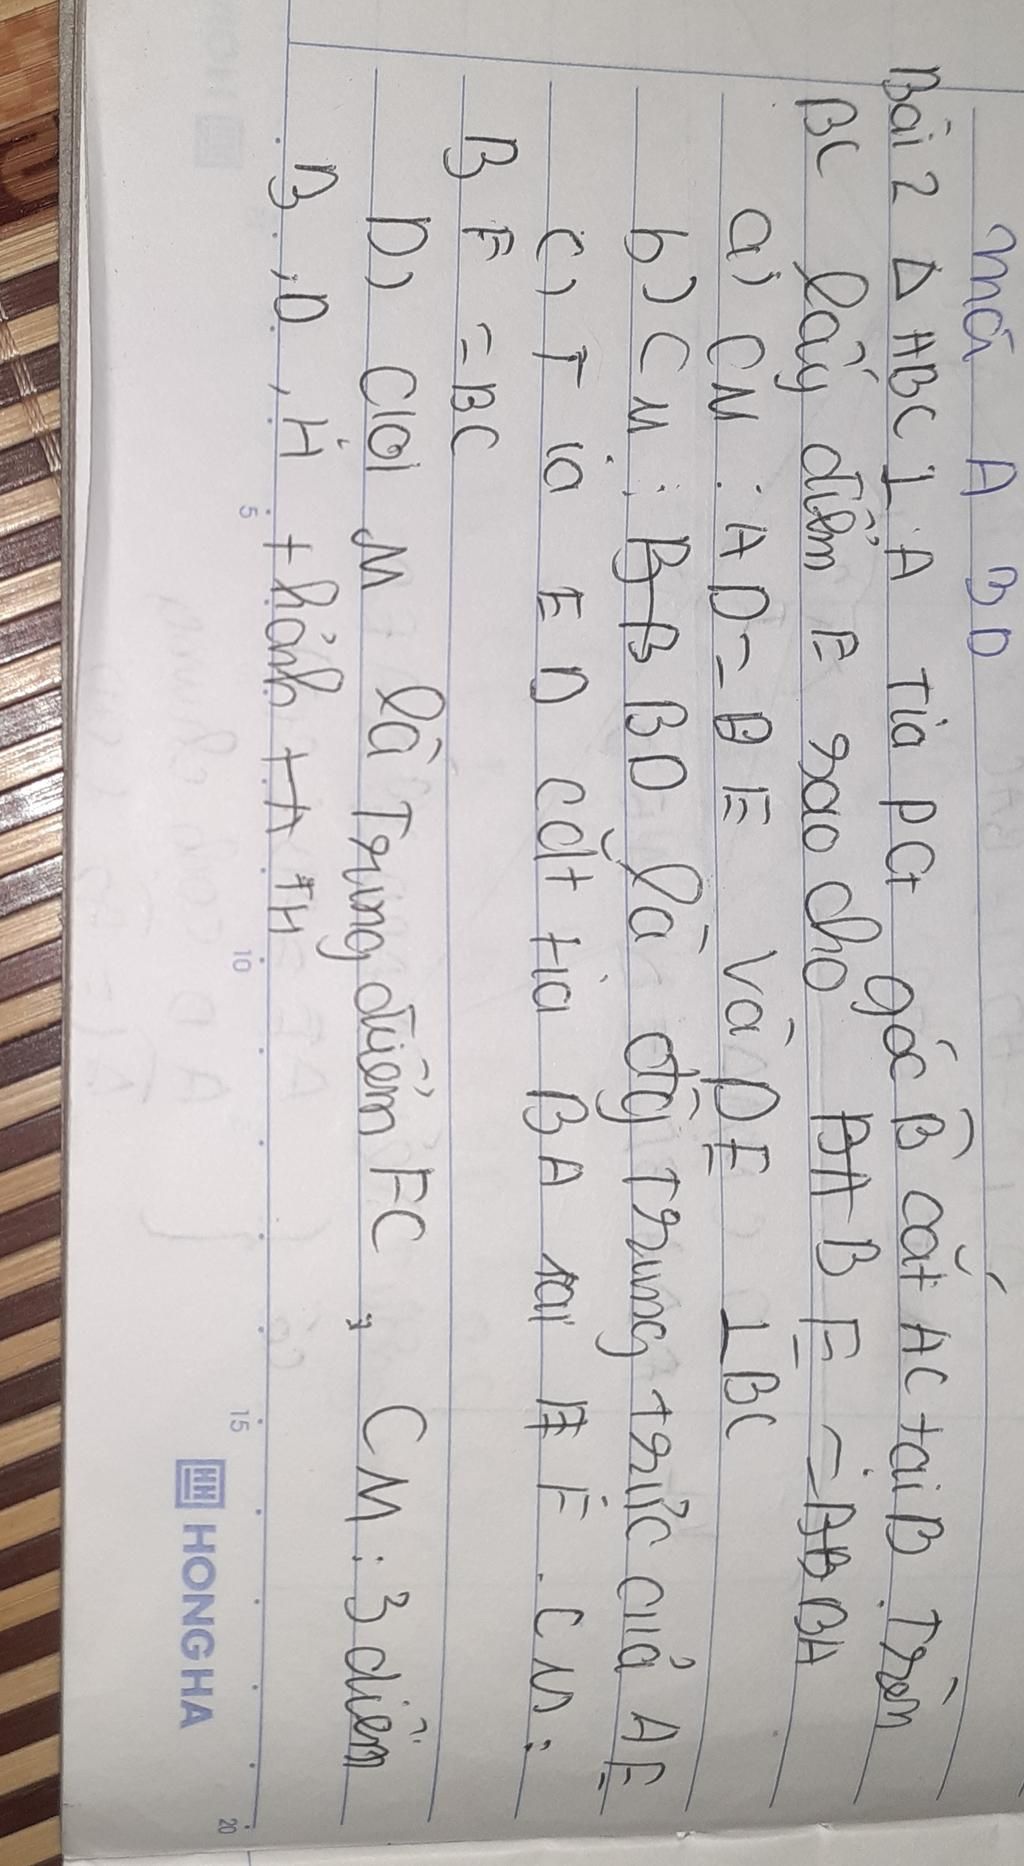 mà A BD
Bài 2 Δ ABC ⊥ A Tia pG góc B cắt AC tại D. Trên
BC lấy điểm E sao cho BE = BA
a) CM : AD = DE và DE ⊥ BC
b) CM : BD là đg trung trực của AE
c) Tia ED cắt tia BA tại F. CM:
BF = BC
D) Gọi M là Trung điểm FC, CM: 3 điểm
B, D, H thẳng
5
10
15
20
HONG HA